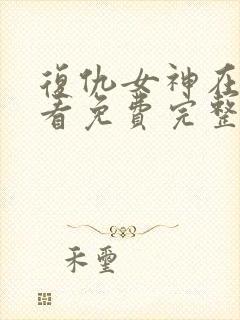 復仇女神在
看免費完整
禾璽